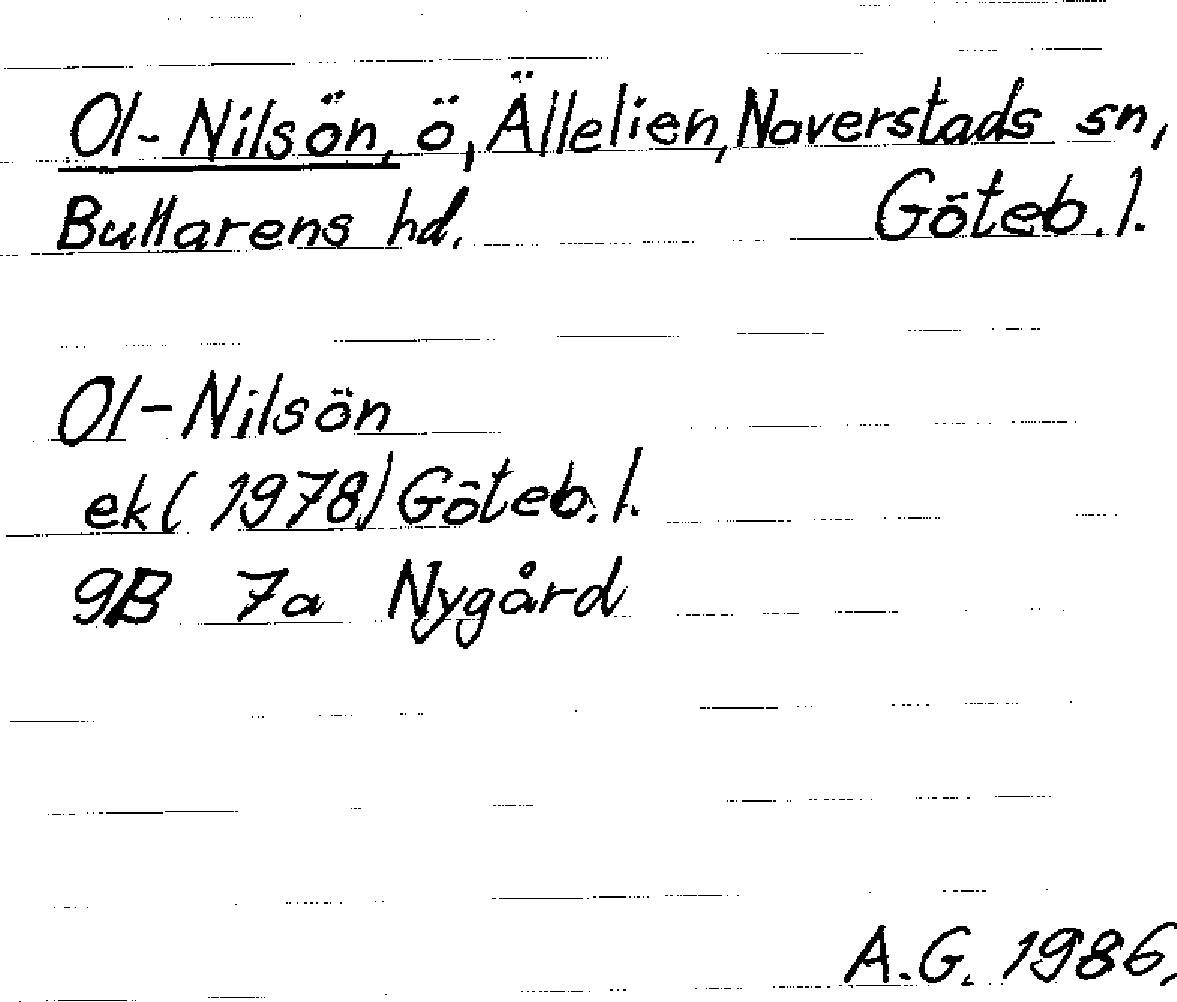 Ol-Nilsön, ö, Ällelien, Naverstads sn,
Bullarens hd. Göteb. l.
Ol-Nilsön
ek (1978) Göteb. l.
9B 7a Nygård
A.G. 1986.